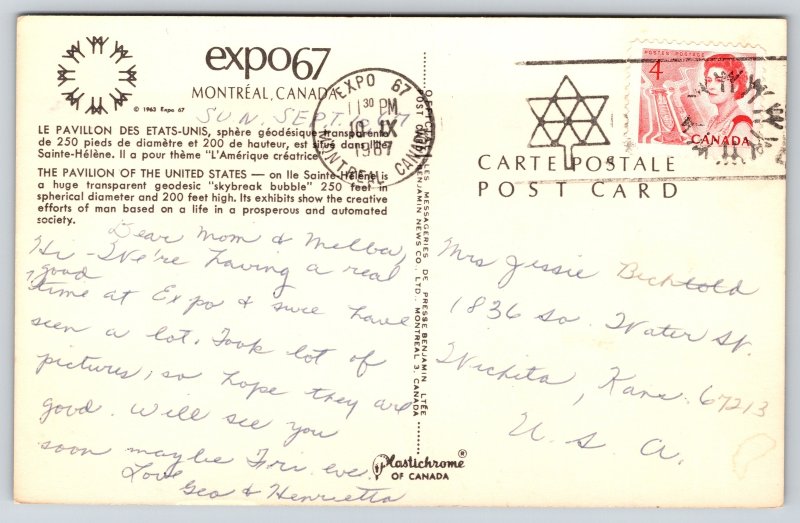 expo67
MONTRÉAL, CANADA
© 1963 Expo 67
SUN. SEPT.
LE PAVILLON DES ETATS-UNIS, sphère géodésique transparente
de 250 pieds de diamètre et 200 de hauteur, est situé dans l'Ile
Sainte-Hélène. Il a pour thème "L'Amérique créatrice
THE PAVILION OF THE UNITED STATES — on Ile Sainte-Hélène is
a huge transparent geodesic "skybreak bubble" 250 feet in
spherical diameter and 200 feet high. Its exhibits show the creative
efforts of man based on a life in a prosperous and automated
society.
Dear Mom & Melba,
Hi - We're having a real
good
time at Expo & sure have
seen a lot. Took lot of
pictures, so hope they are
good. Will see you
soon maybe Fri. eve.
Love
Geo & Henrietta
EXPO 67
11 30 PM
10 IX
1967
MONTREAL CANADA
LES MESSAGERIES DE PRESSE BENJAMIN LTÉE
BENJAMIN NEWS CO., LTD., MONTREAL 3, CANADA
Plastichrome ®
OF CANADA
POSTES POSTAGE
4
CANADA
CARTE POSTALE
POST CARD
Mrs Jessie Bichtold
1836 So. Water St.
Wichita, Kans. 67213
U. S. A.